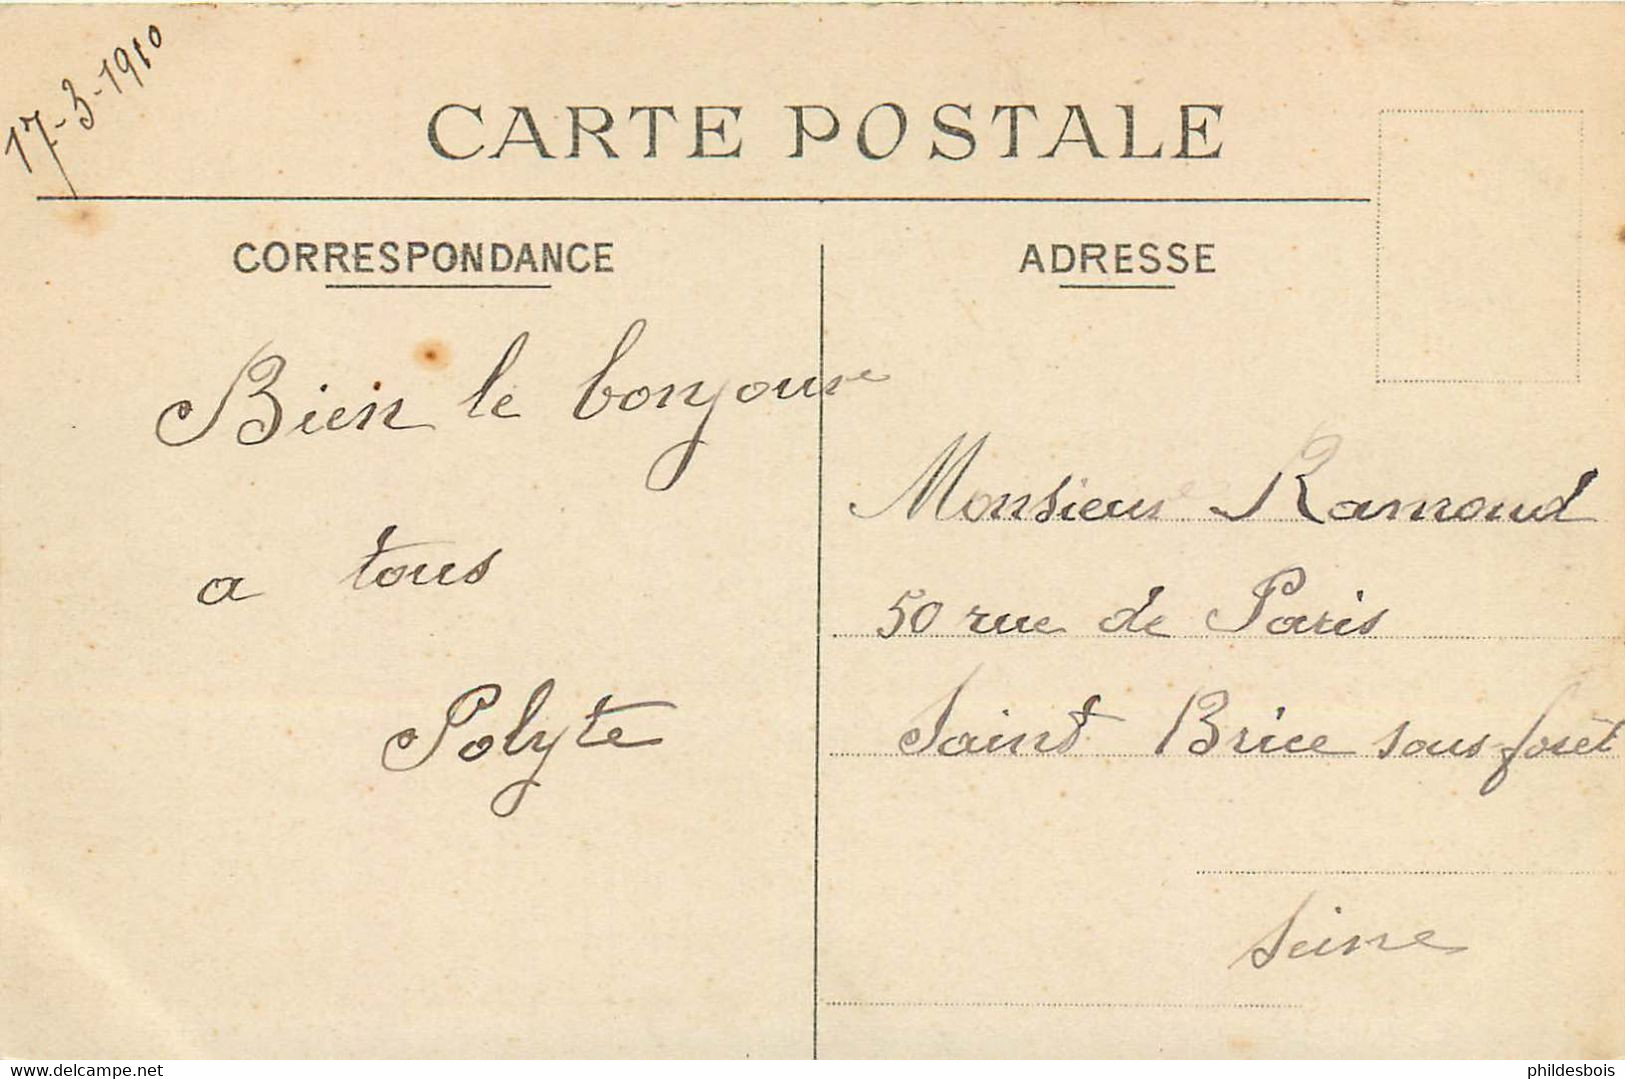 17-3-1910
CARTE POSTALE
CORRESPONDANCE
Bien le bonjour
a tous
Polyte
ADRESSE
Monsieur Ramond
50 rue de Paris
Saint Brice sous forêt
Seine
delcampe.net
phildesbois